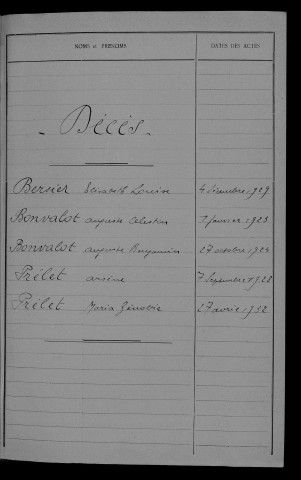 NOMS et PRÉNOMS DATES DES ACTES
- Décès -
Bersier Elisabeth Louise 4 décembre 1929
Bonvalot auguste Celestin 1 février 1923
Bonvalot auguste Benjamin 27 octobre 1924
Prélet arsène 7 septembre 1928
Prélet Maria Zénobie 27 avril 1932